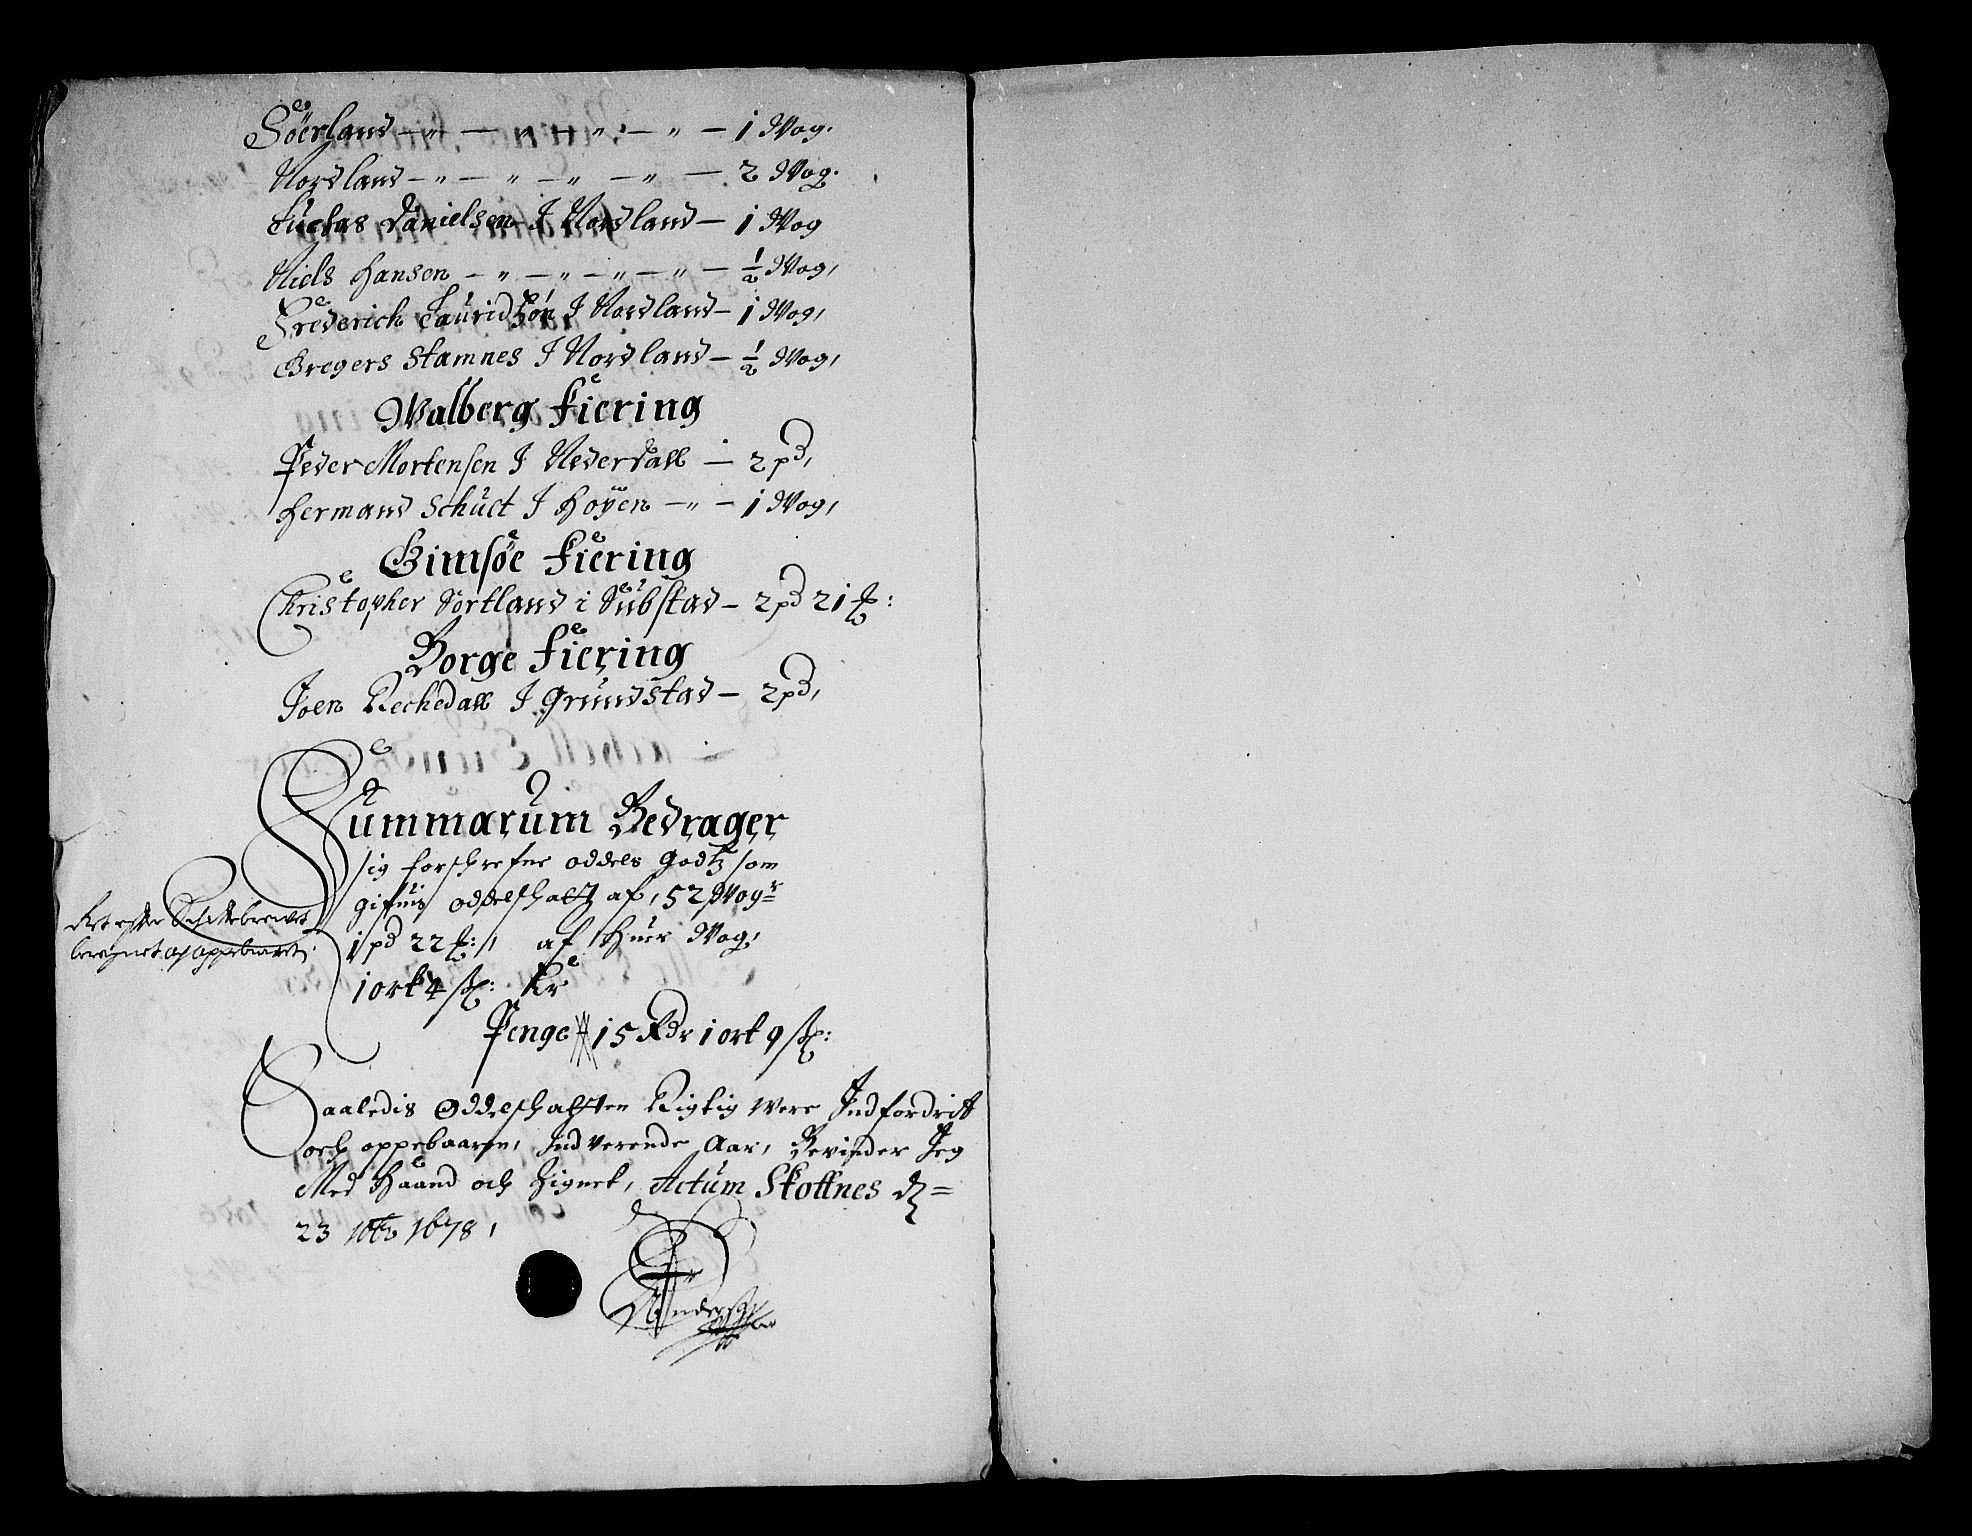 Söerland — „ — „ — „ — „ — 1 Wog.
Nordland — „ — „ — „ — „ — 2 Wog.
Lucas Danielsen I Nordland — 1 Wog
Niels Hansen — „ — „ — „ — „ — ½ Wog,
Frederich Lauridtzön I Nordland — 1 Wog,
Gregers Stamnes I Nordland — ½ Wog,
Walberg Fiering
Peder Mortensen I Nederdall — 2 pd,
Hermand Schuct I Höyen — „ — 1 Wog,
Gimsöe Fiering
Christopher Sortland i Substad — 2 pd 21 ℔:
Borge Fiering
Joen Rechedall I Grundstad — 2 pd,
Summarum Bedrager
sig forschrefne oddels Godtz som
gifuis oddelschatt af, 52 Wogr
1 pd 22 ℔:, af Huer Wog,
1 ort 4 sk: Er
Penge 15 Rdr 1 ort 9 sk:
Ret efter Schattebrevet
beregnet og oppebaaret.
Saaledis Oddelschatten Rigtig Were Indfordrit
och oppebaaren, Indverende Aar, Bevinder Jeg
Med Haand och Zignet, Actum Skottnes d =
23 10br 1678,
Anders